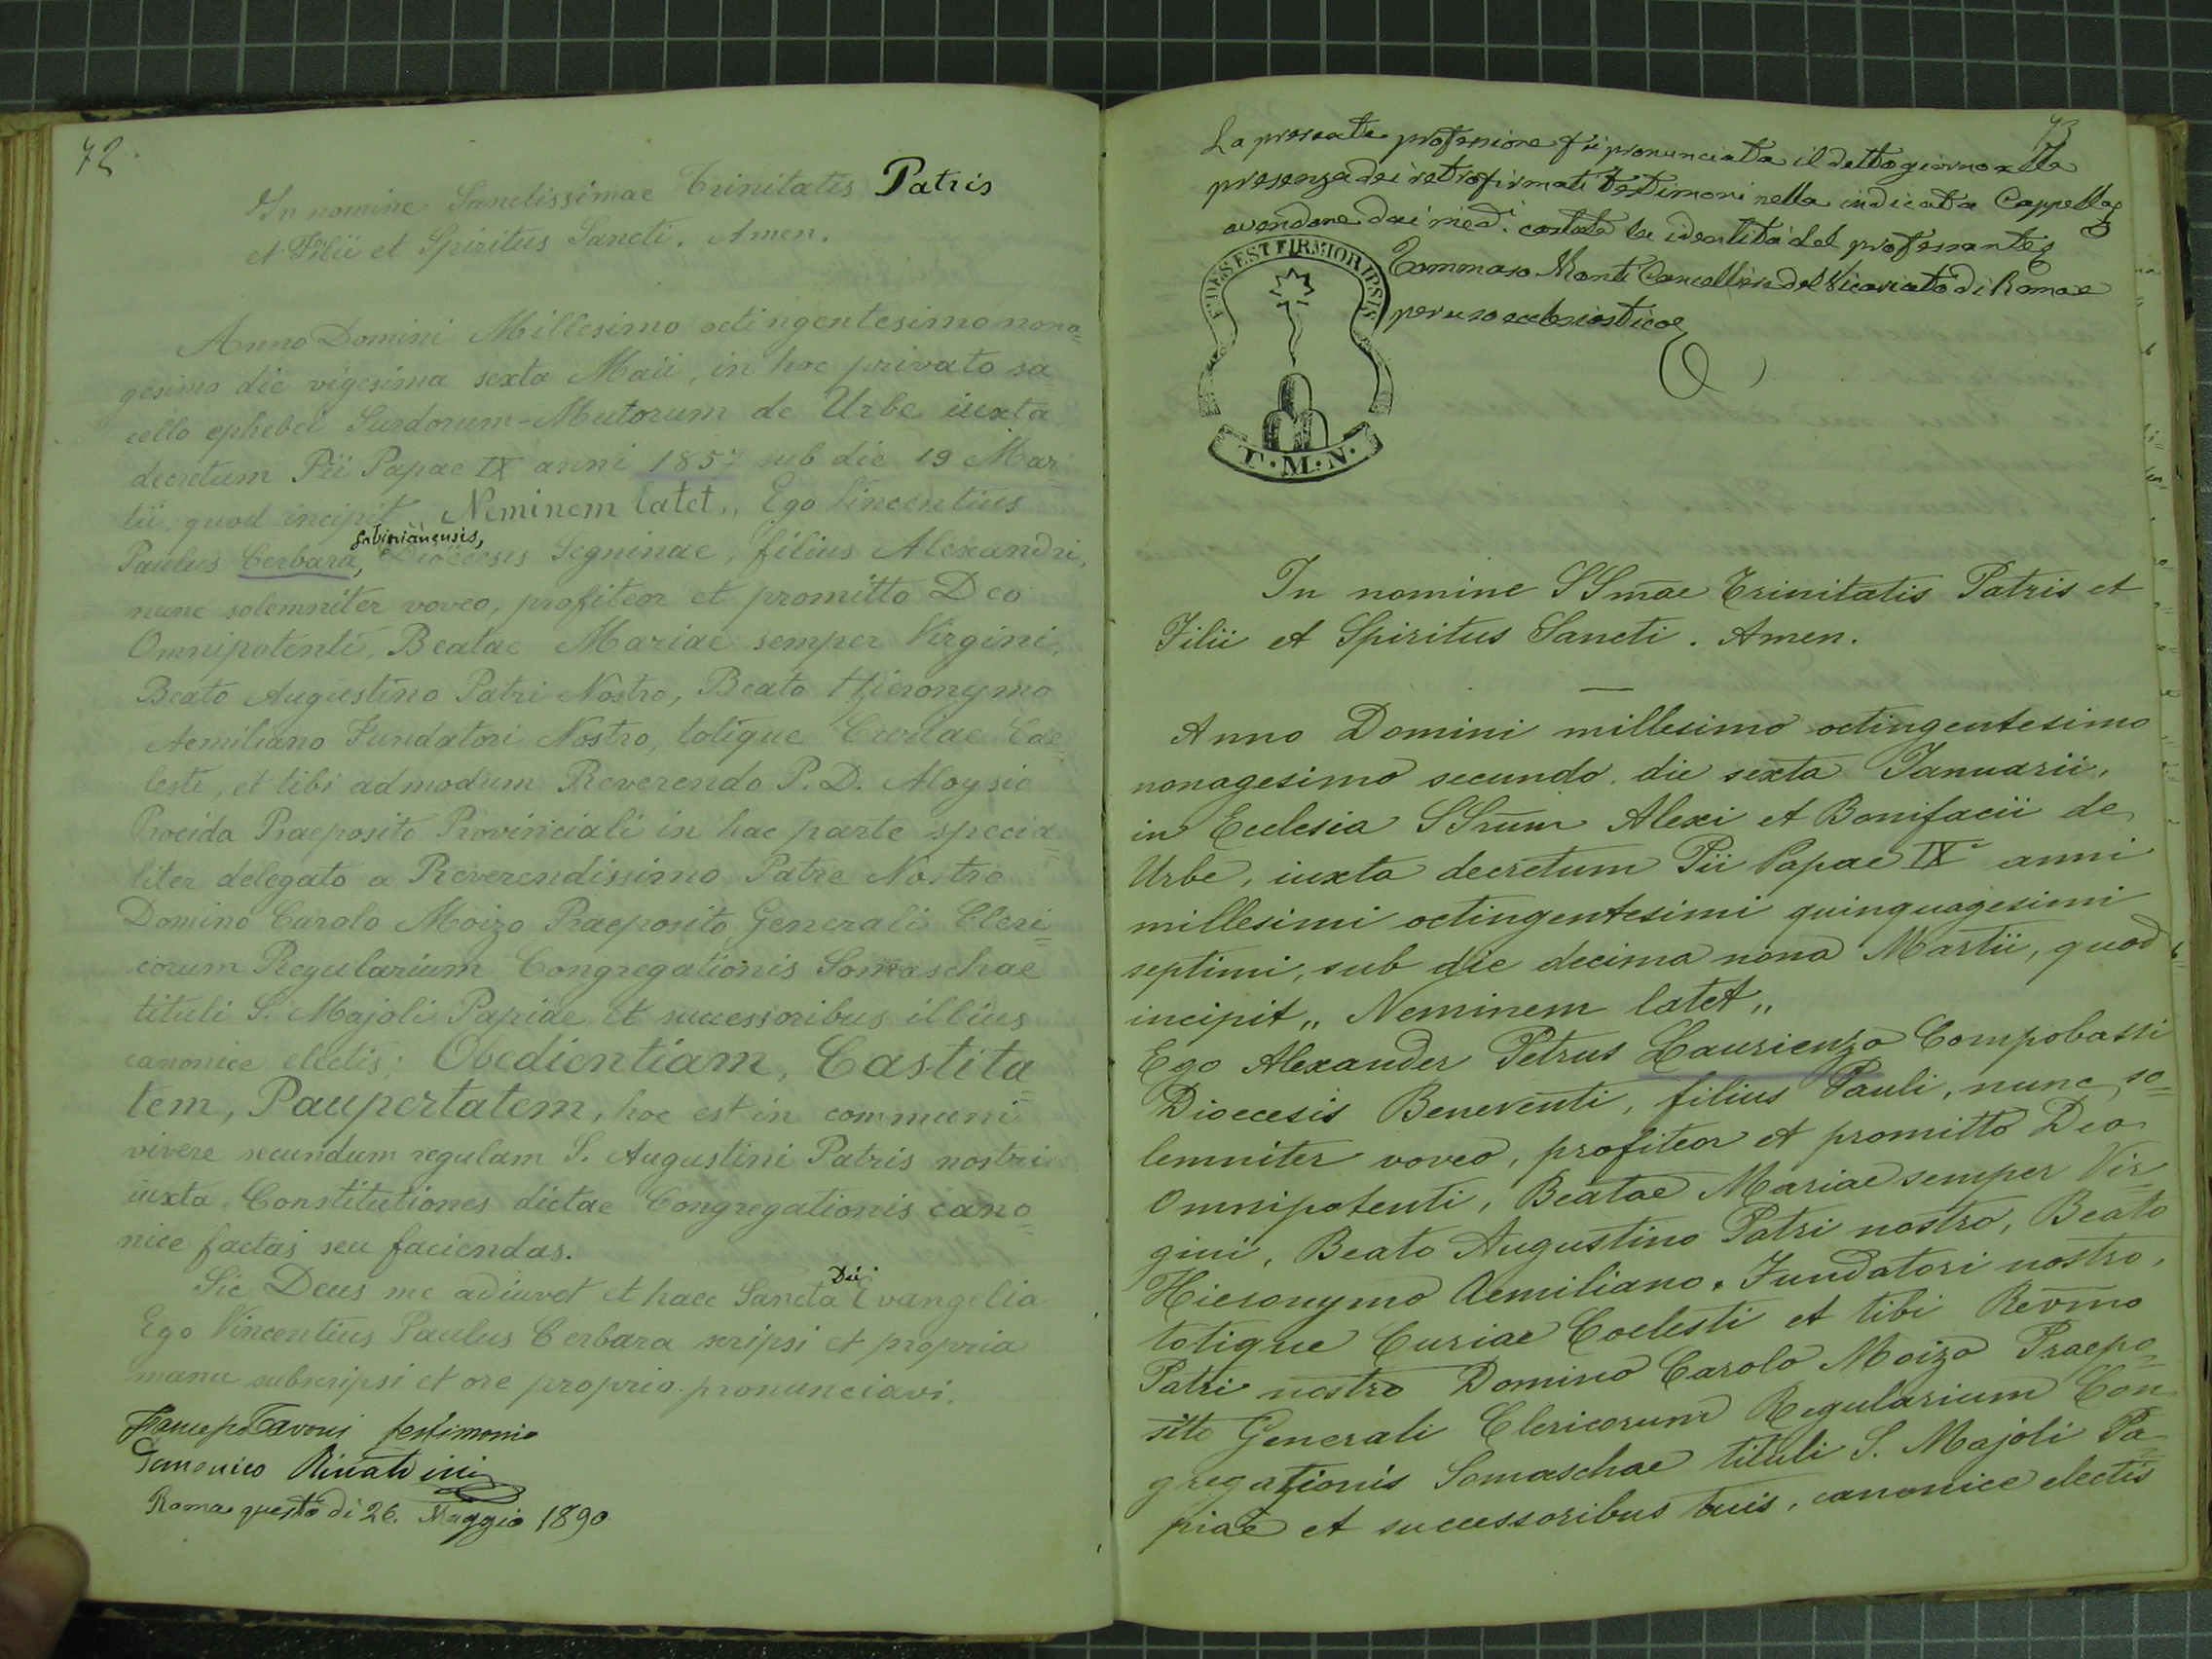 72.
In nomine Sanctissimae Trinitatis Patris
et Filii et Spiritus Sancti. Amen.
Anno Domini Millesimo octingentesimo nona=
gesimo die vigesima sexta Maii, in hoc privato sa=
cello ephebei Surdorum-Mutorum de Urbe iuxta
decretum Pii Papae IX anni 1857 sub die 19 Mar
tii, quod incipit Neminem latet,, Ego Vincentius
Gabinianensis,
Paulus Cerbara, Dioecesis Segninae, filius Alexandri,
nunc solemniter voveo, profiteor et promitto Deo
Omnipotenti, Beatae Mariae semper Virgini,
Beato Augustino Patri Nostro, Beato Hieronymo
Aemiliano Fundatori Nostro, totique Curiae Cae=
lesti, et tibi admodum Reverendo P. D. Aloysio
Procida Praeposito Provinciali in hac parte specia=
liter delegato a Reverendissimo Patre Nostro
Domino Carolo Moizo Praeposito Generali Cleri=
corum Regularium Congregationis Somaschae
tituli S. Majoli Papiae et successoribus illius
canonice electis; Obedientiam, Castita=
tem, Paupertatem, hoc est in communi
vivere secundum regulam S. Augustini Patris nostri
iuxta Constitutiones dictae Congregationis cano=
nice factas seu faciendas.
Dei
Sic Deus me adiuvet et haec Sancta Evangelia
Ego Vincentius Paulus Cerbara scripsi et propria
manu subscripsi et ore proprio pronunciavi.
Tavoni testimonio
Domenico Rinaldini
Roma questo dì 26. Maggio 1890
73
La presente professione fu pronunciata il detto giorno alla
presenza dei retrofirmati testimoni nella indicata Cappella
avendone dai med.i costata la identità del professante
Tommaso Monti Cancelliere del Vicariato di Roma
per uso ecclesiastico
FIDES EST FIRMIOR IPSIS
T.M.N.
In nomine SSmae Trinitatis Patris et
Filii et Spiritus Sancti. Amen.
Anno Domini millesimo octingentesimo
nonagesimo secundo, die sexta Januarii,
in Ecclesia SSrum Alexi et Bonifacii de
Urbe, iuxta decretum Pii Papae IX anni
millesimi octingentesimi quinquagesimi
septimi, sub die decima nona Martii, quod
incipit „ Neminem latet „
Ego Alexander Petrus Laurienzo Compobassi
Dioecesis Beneventi, filius Pauli, nunc so=
lemniter voveo, profiteor et promitto Deo
Omnipotenti, Beatae Mariae semper Vir=
gini, Beato Augustino Patri nostro, Beato
Hieronymo Aemiliano, Fundatori nostro,
totique Curiae Coelesti et tibi Revmo
Patri nostro Domino Carolo Moizo Praepo=
sito Generali Clericorum Regularium Con=
gregationis Somaschae tituli S. Majoli Pa=
piae et successoribus tuis, canonice electis